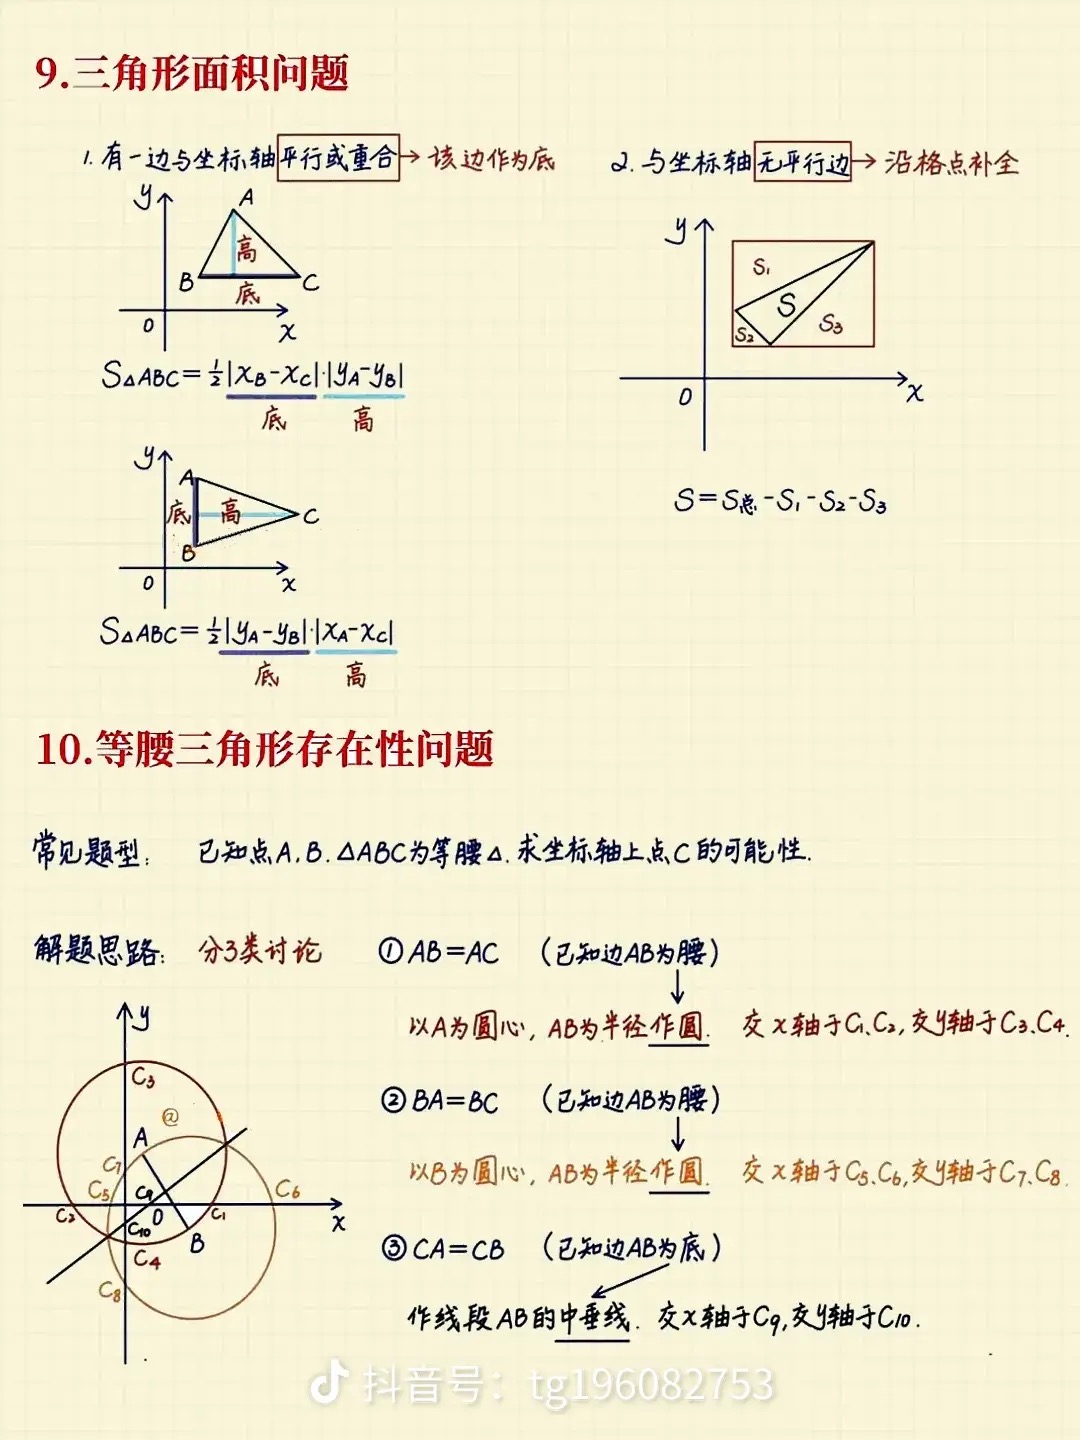 9.三角形面积问题
1. 有一边与坐标轴平行或重合→该边作为底
y
A
高
B
C
底
O
x
S△ABC=½|xB-xC|·|yA-yB|
底 高
y
A
底 高
C
B
O
x
S△ABC=½|yA-yB|·|xA-xC|
底 高
2. 与坐标轴无平行边→沿格点补全
y
S₁
S
S₂
S₃
O
x
S=S总-S₁-S₂-S₃
10.等腰三角形存在性问题
常见题型: 已知点A,B.△ABC为等腰△.求坐标轴上点C的可能性.
解题思路: 分3类讨论 ①AB=AC (已知边AB为腰)
以A为圆心, AB为半径作圆. 交x轴于C₁、C₂,交y轴于C₃、C₄.
②BA=BC (已知边AB为腰)
以B为圆心, AB为半径作圆. 交x轴于C₅、C₆,交y轴于C₇、C₈.
③CA=CB (已知边AB为底)
作线段AB的中垂线. 交x轴于C₉,交y轴于C₁₀.
y
C₃
@
A
C₇
C₅
C₉
C₆
C₂
O
C₁
x
C₁₀
B
C₄
C₈
抖音号: tg196082753